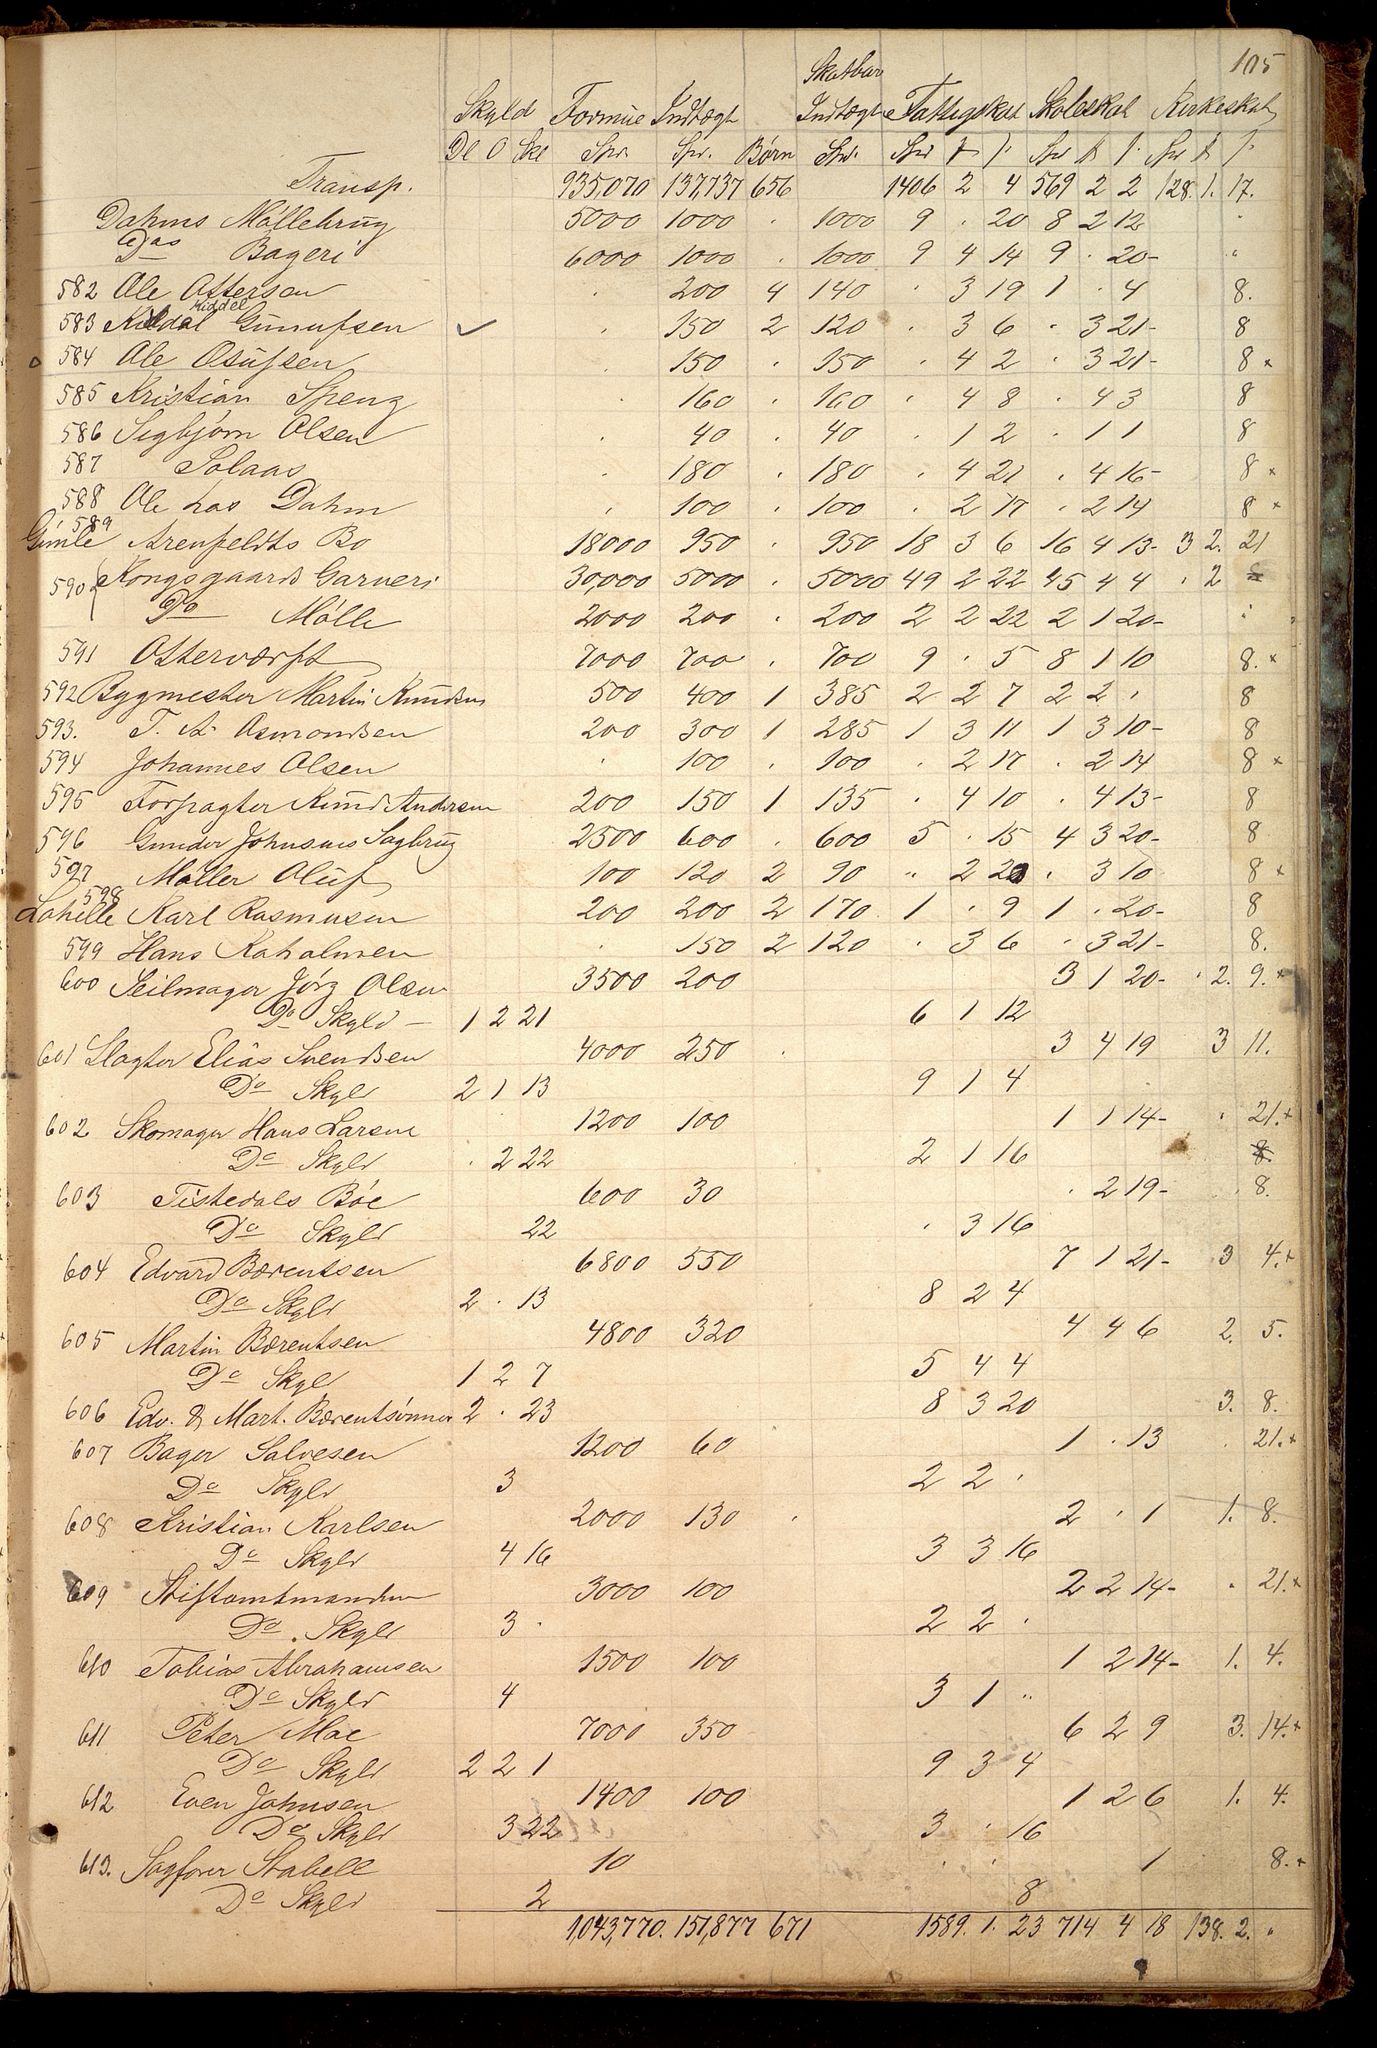 105
Skatbar
Skyld Formue Indtægt Indtægt Fattigskat Skoleskat Kirkeskat
Dl O Skl Spr. Spr. Børn Spr. Spr
Transp. 935,070 137,737 656 1406 2 4 569 2 2 128. 1. 17.
Dahms Møllebrug 5000 1000 . 1000 9 . 20 8 2 12
Dos Bageri 6000 1000 . 1000 9 4 14 9 . 20-
582 Ole Ottersen . 200 4 140 . 3 19 1 . 4 8.
Middel
583 Kildal Gunufsen ✓ . 150 2 120 . 3 6 . 3 21- 8
584 Ole Osufsen . 150 . 150 . 4 2 . 3 21- 8 x
585 Kristian Speng . 160 . 160 . 4 8 . 4 3 8
586 Sigbjørn Olsen . 40 . 40 . 1 2 . 1 1 8
587 Solaas . 180 . 180 . 4 21 . 4 16- 8 x
588 Ole hos Dahm . 100 . 100 . 2 17 . 2 14 8 x
589
Gimle Arenfeldts Bo 18000 950 . 950 18 3 6 16 4 13- 3 2. 21
590 Kongsgaard Garveri 30,000 5000 . 5000 49 2 22 45 4 4 . 2 8
Do Mølle 2000 200 . 200 2 2 22 2 1 20-
591 Otterværft 7000 700 . 700 9 . 5 8 1 10 8. x
592 Bygmester Martin Knudsen 500 400 1 385 2 2 7 2 2 . 8
593. T. A. Osmondsen 200 300 1 285 1 3 11 1 3 10- 8
594 Johannes Olsen . 100 . 100 . 2 17 . 2 14 8 x
595 Forpagter Knud Andersen 200 150 1 135 . 4 10 . 4 13- 8
596 Gunder Johnsens Sagbrug 2500 600 . 600 5 . 15 4 3 20- 8
597 Møller Oluf 100 120 2 90 " 2 20 . 3 10 8 x
598
Lahelle Karl Rasmusen 200 200 2 170 1 . 9 1 . 20- 8
599 Hans Kaholmen . 150 2 120 . 3 6 . 3 21- 8.
600 Seilmager Jørg Olsen 3500 200 3 1 20- . 2. 9. x
Do Skyld - 1 2 21 6 1 12
601 Slagter Elias Svendsen 4000 250 . 3 4 19 3 11.
Do Skyld 2 1 13 9 1 4
602 Skomager Hans Larsen 1200 100 1 1 14- . 21. x
Do Skyld . 2 22 2 1 16 8.
603 Tistedals Bøe 600 30 . 2 19- . 8.
Do Skyld 22 . 3 16
604 Edvard Bærentsen 6800 550 7 1 21- 3 4. x
Do Skyld 2 . 13 8 2 4
605 Martin Bærentsen 4800 320 4 4 6 2. 5.
Do Skyl 1 2 7 5 4 4
606 Edv. & Mart. Bærentsønner 2 . 23 8 3 20 3. 8.
607 Bager Salvesen 1200 60 1 . 13 . 21. x
Do Skyld 3 2 2 .
608 Kristian Karlsen 2000 130 . 2 . 1 1. 8.
Do Skyld 4 16 3 3 16
609 Stiftamtmanden 3000 100 2 2 14- . 21. x
Do Skyld 3 . 2 2 .
610 Tobias Abrahamsen 1500 100 1 2 14- 1. 4.
Do Skyld 4 3 1 "
611 Peter Moe 7000 350 6 2 9 3. 14. x
Do Skyld 2 2 1 9 3 4
612 Even Johnsen 1400 100 1 2 6 1. 4.
Do Skyld 3 22 3 . 16
613. Sagfører Stabell 10 . . 1 8. x
Do Skyld 2 8
1,043,770. 151,877 671 1589. 1. 23 714 4 18 138. 2. "